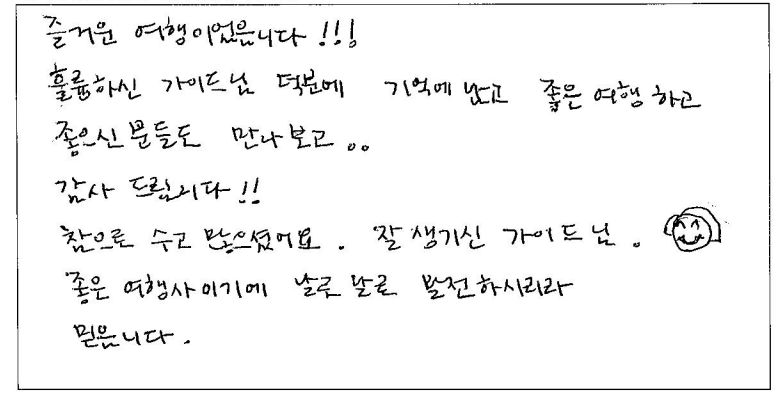 즐거운 여행이었읍니다 !!!
훌륭하신 가이드님 덕분에 기억에 남고 좋은 여행 하고
좋으신 분들도 만나보고 。。
감사 드립니다 !!
참으로 수고 많으셨어요 . 잘 생기신 가이드님 .
좋은 여행사이기에 날로 날로 발전하시리라
믿읍니다 .